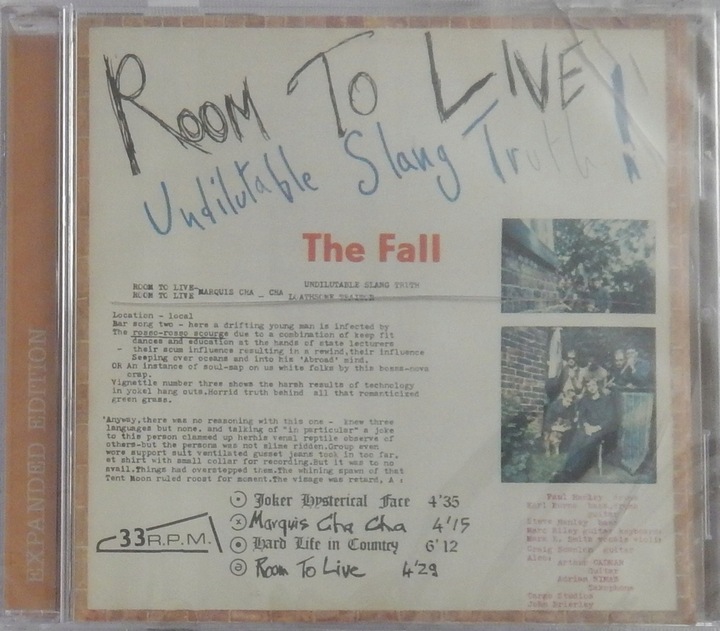 ROOM TO LIVE
Undilutable Slang Truth!
The Fall
ROOM TO LIVE-MARQUIS CHA _ CHA UNDILUTABLE SLANG TRUTH
ROOM TO LIVE
Location - local
Bar song two - here a drifting young man is infected by
The rosso-rosso scourge due to a combination of keep fit
dances and education at the hands of state lecturers
- their scum influence resulting in a rewind, their influence
Seeping over oceans and into his 'Abroad' mind.
OR An instance of soul-sap on us white folks by this bossa-nova
crap.
Vignettie number three shows the harsh results of technology
in yokel hang outs. Horrid truth behind all that romanticized
green grass.
'Anyway, there was no reasoning with this one - knew three
languages but none, and talking of "in particular" a joke
to this person clammed up herhis venal reptile observe of
others-but the persona was not slime ridden. Group even
wore support suit ventilated gusset jeans took in too far.
at shirt with small collar for recording. But it was to no
avail. Things had overstepped them. The whining spawn of that
Tent Moon ruled roost for moment. The visage was retard. A :
Joker Hysterical Face 4'35
x Marquis Cha Cha 4'15
Hard Life in Country 6'12
Room To Live 4'29
33 R.P.M.
EXPANDED EDITION
Paul Hanley
Karl Burns
guitar
Steve Hanley bass
Marc Riley guitar keyboards
Mark E. Smith vocals
Craig Scanlon guitar
Also:
Arthur CADMAN
Guitar
Adrian NIMAN
Saxophone
Cargo Studios
John Brierley